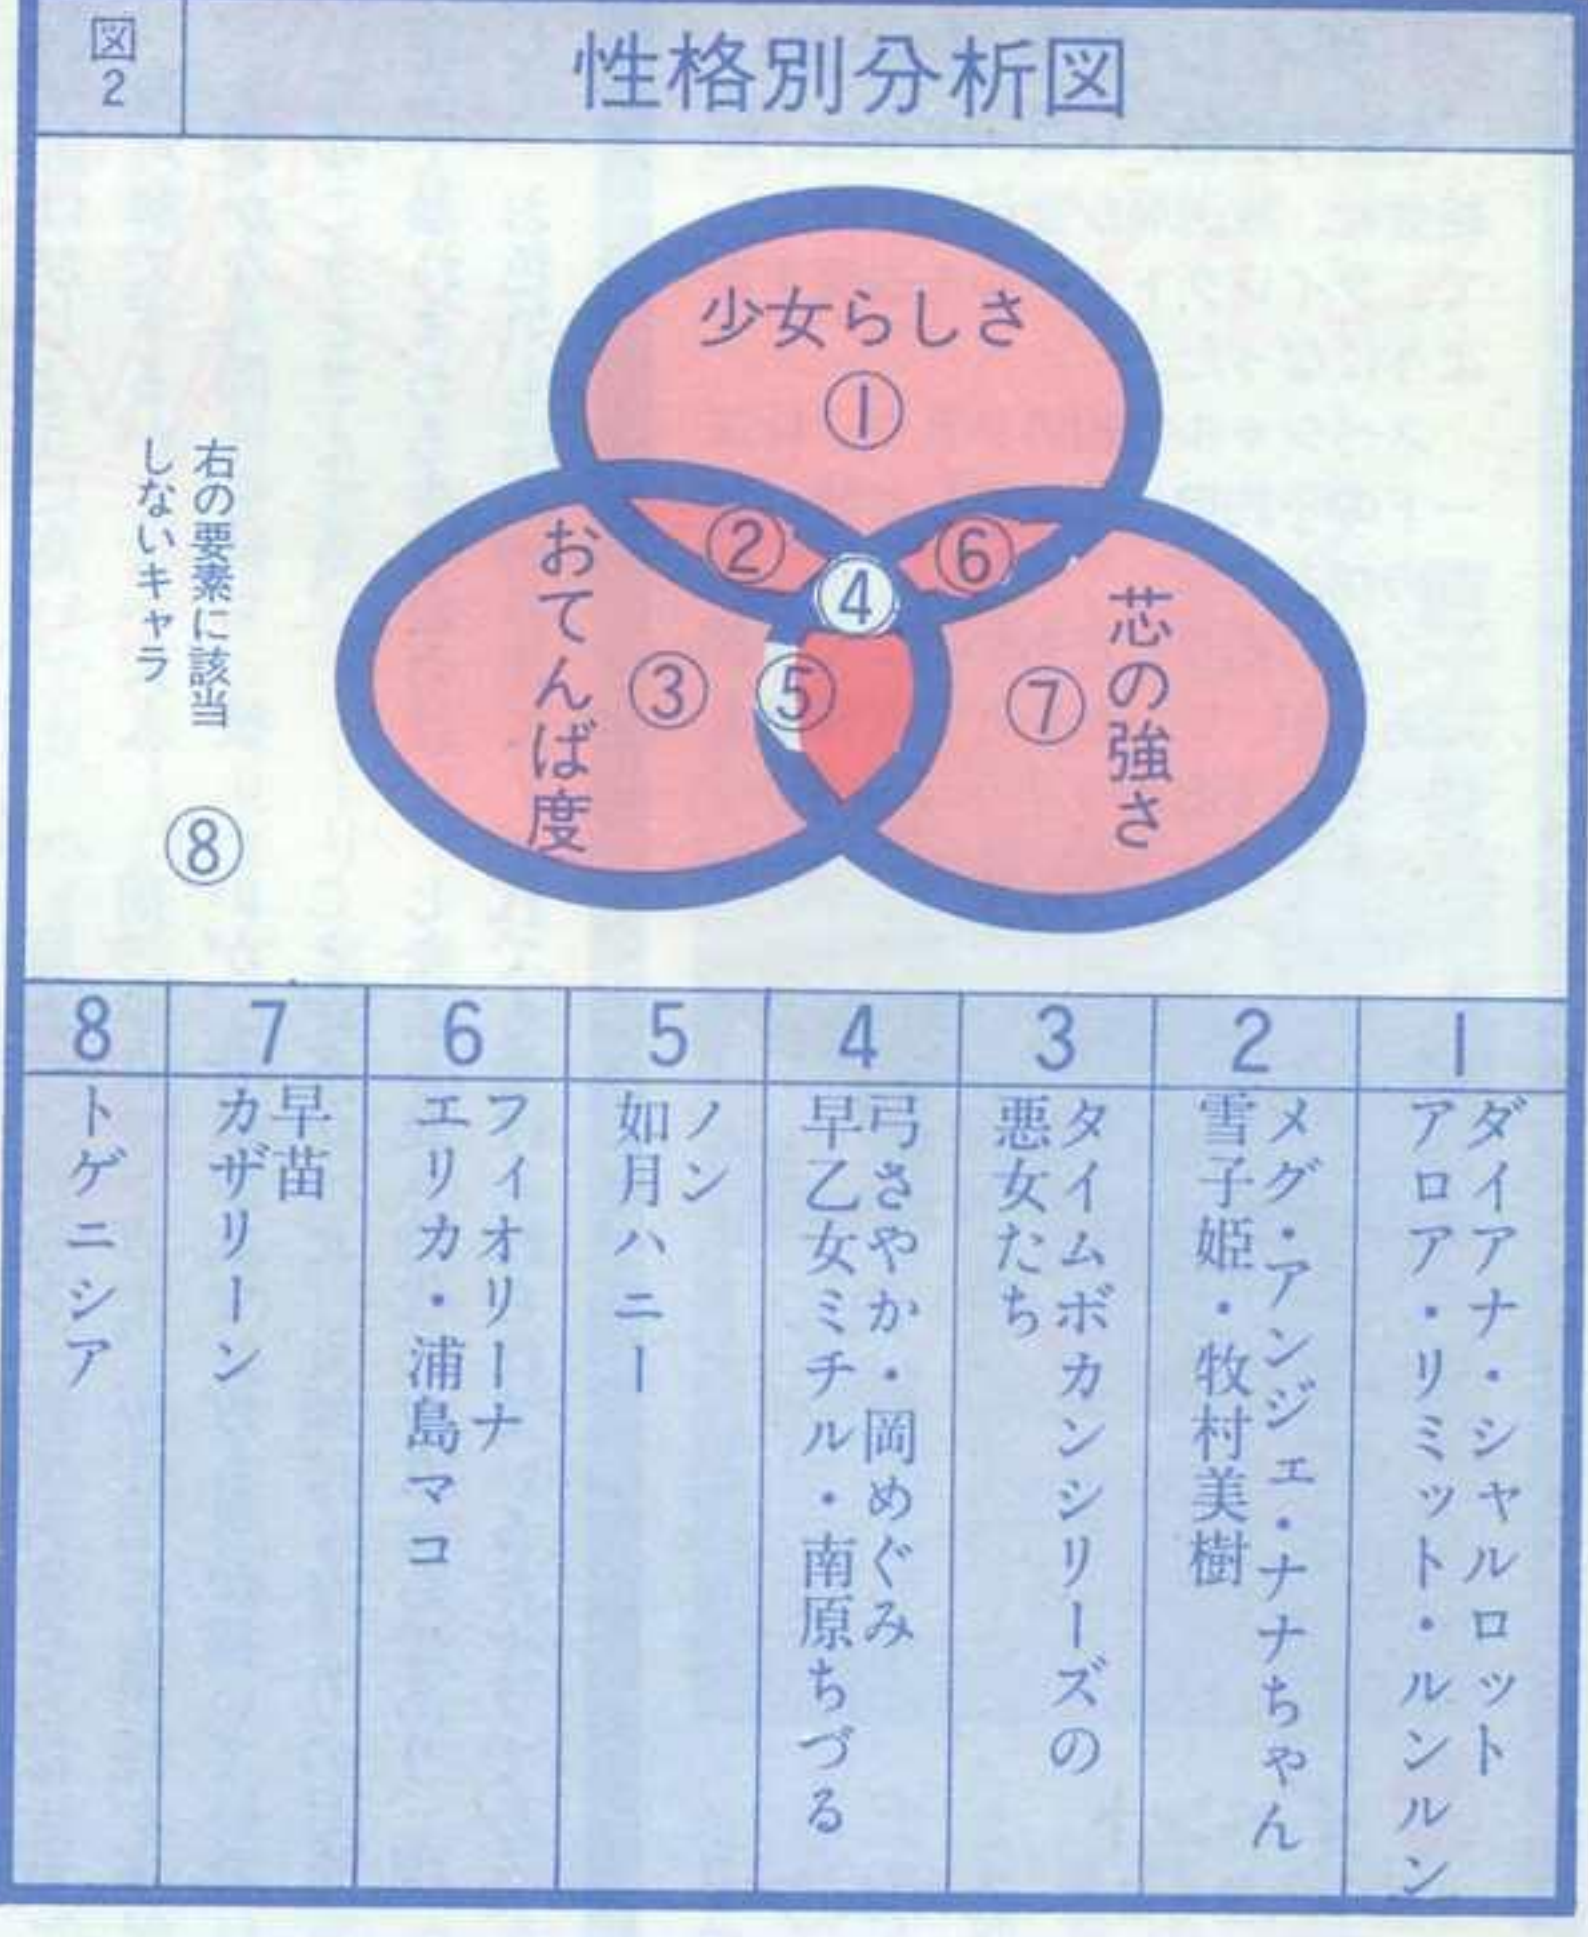 図2
性格別分析図
少女らしさ
①
②
⑥
④
おてんば度
③
⑤
芯の強さ
⑦
右の要素に該当
しないキャラ
⑧
1
ダイアナ・シャルロット
アロア・リミット・ルンルン
2
メグ・アンジェ・ナナちゃん
雪子姫・牧村美樹
3
タイムボカンシリーズの
悪女たち
4
弓さやか・岡めぐみ
早乙女ミチル・南原ちづる
5
ノン
如月ハニー
6
フィオリーナ
エリカ・浦島マコ
7
早苗
カザリーン
8
トゲニシア